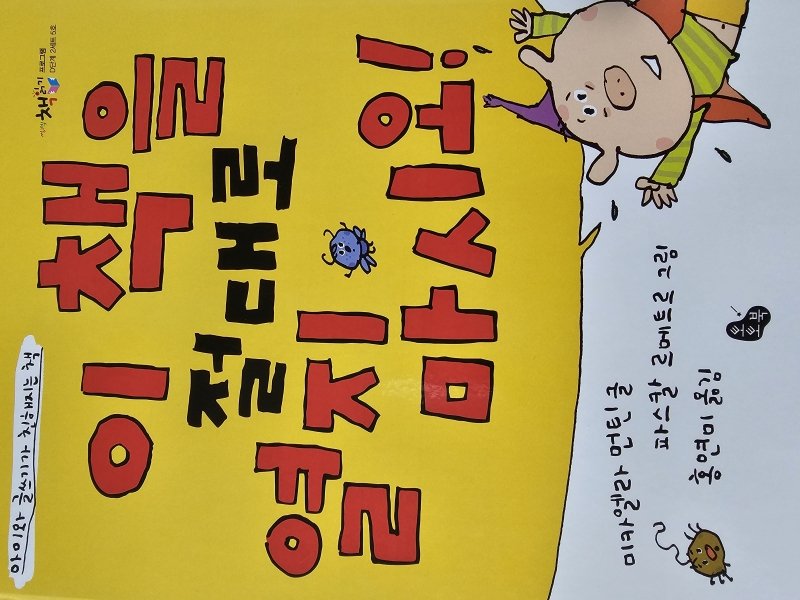 아이와 글쓰기가 친해지는 책
책읽기 프로그램
D단계 2세트 5호
이 책을
절대로
열지
마시요!
미카엘라 먼틴 글
파스칼 르메트르 그림
홍연미 옮김
토토북